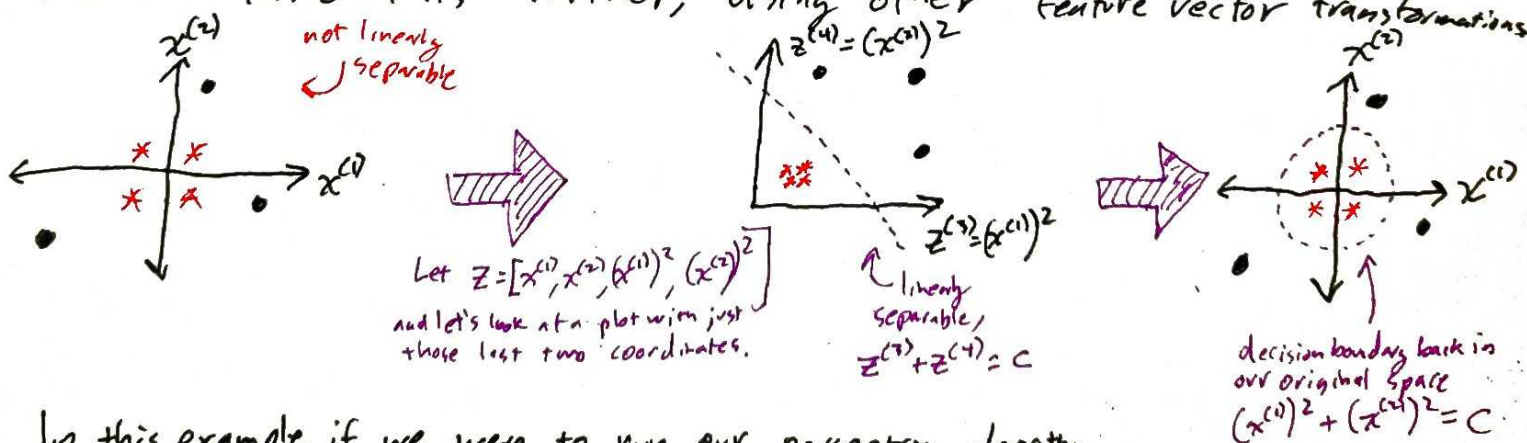 using other feature vector transformations
x^(2)
not linearly
separable
x^(1)
Let Z = [x^(1), x^(2), (x^(1))^2, (x^(2))^2]
and let's look at a plot with just
those last two coordinates.
z^(4) = (x^(2))^2
z^(3) = (x^(1))^2
linearly
separable,
z^(3) + z^(4) = C
x^(2)
x^(1)
decision boundary back in
our original space
(x^(1))^2 + (x^(2))^2 = C
In this example if we were to run our perceptron